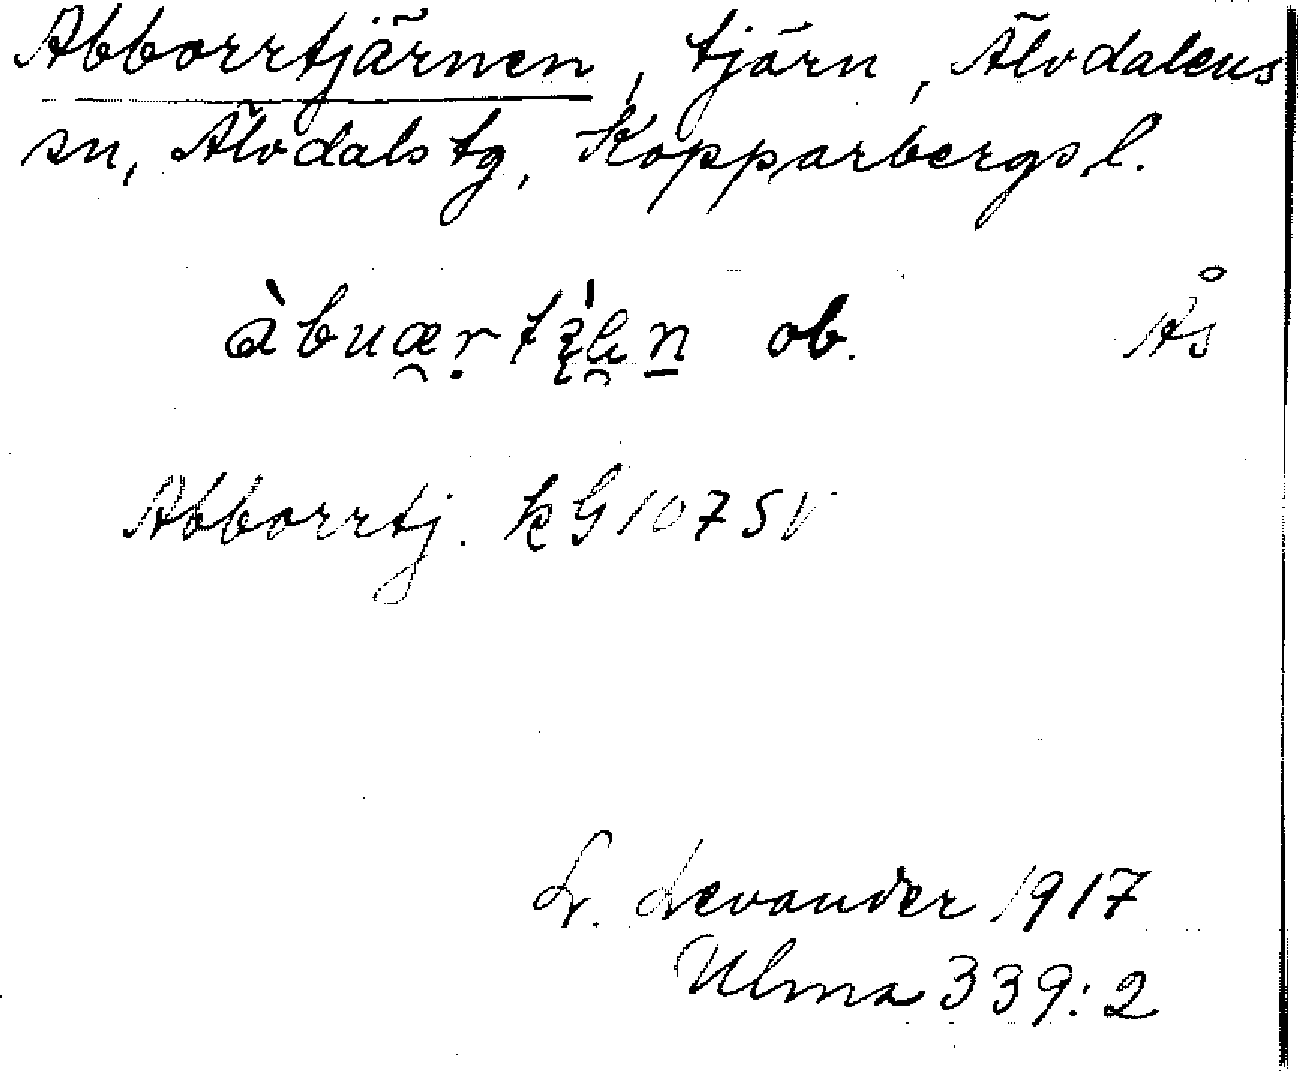 Abborrtjärnen, tjärn, Älvdalens
sn, Älvdals tg, Kopparbergs l.
ob. Ås
Abborrtj. kG 107 SV
L. Levander 1917
Ulma 339:2